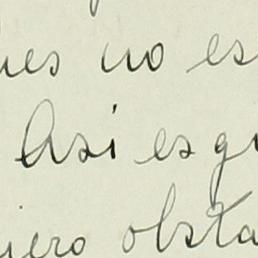 ues no es
Asi es qu
iero obsta